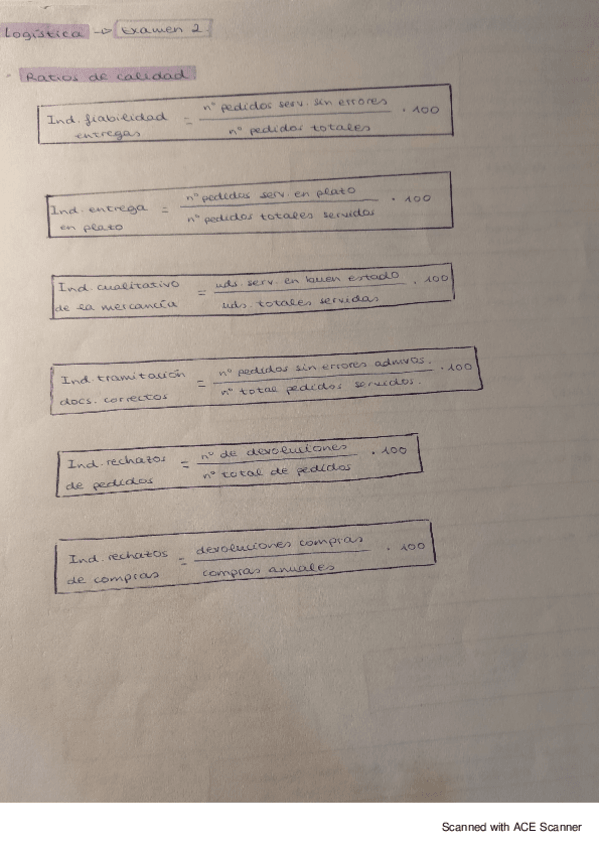 Logística → Examen 2
· Ratios de calidad
Ind. fiabilidad entregas = nº pedidos serv. sin errores / nº pedidos totales · 100
Ind. entrega en plato = nº pedidos serv. en plato / nº pedidos totales servidos · 100
Ind. cualitativo de la mercancía = uds. serv. en buen estado / uds. totales servidas · 100
Ind. tramitación docs. correctos = nº pedidos sin errores admivos. / nº total pedidos servidos. · 100
Ind. rechazos de pedidos = nº de devoluciones / nº total de pedidos · 100
Ind. rechazos de compras = devoluciones compras / compras anuales · 100
Scanned with ACE Scanner